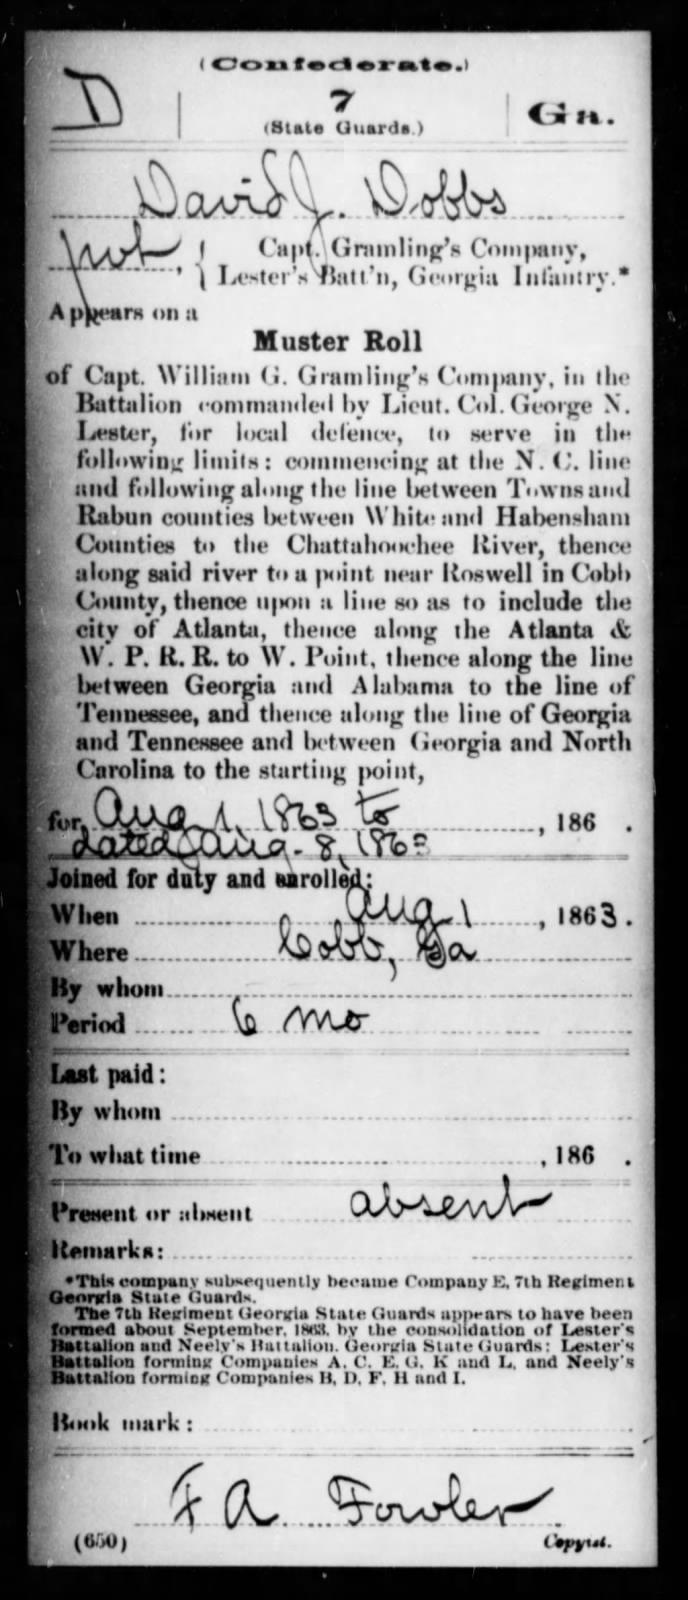 (Confederate.)
D | 7 | Ga.
(State Guards.)
David J. Dobbs
pvt, { Capt. Gramling's Company,
Lester's Batt'n, Georgia Infantry.*
Appears on a
Muster Roll
of Capt. William G. Gramling's Company, in the
Battalion commanded by Lieut. Col. George N.
Lester, for local defence, to serve in the
following limits: commencing at the N. C. line
and following along the line between Towns and
Rabun counties between White and Habensham
Counties to the Chattahoochee River, thence
along said river to a point near Roswell in Cobb
County, thence upon a line so as to include the
city of Atlanta, thence along the Atlanta &
W. P. R. R. to W. Point, thence along the line
between Georgia and Alabama to the line of
Tennessee, and thence along the line of Georgia
and Tennessee and between Georgia and North
Carolina to the starting point,
for Aug 1, 1863 to , 186 .
dated Aug. 8, 1863
Joined for duty and enrolled:
When Aug 1 , 1863.
Where Cobb, Ga
By whom
Period 6 mo
Last paid:
By whom
To what time , 186 .
Present or absent absent
Remarks:
*This company subsequently became Company E, 7th Regiment
Georgia State Guards.
The 7th Regiment Georgia State Guards appears to have been
formed about September, 1863, by the consolidation of Lester's
Battalion and Neely's Battalion, Georgia State Guards; Lester's
Battalion forming Companies A, C, E, G, K and L, and Neely's
Battalion forming Companies B, D, F, H and I.
Book mark:
F A. Fowler
(650) Copyist.